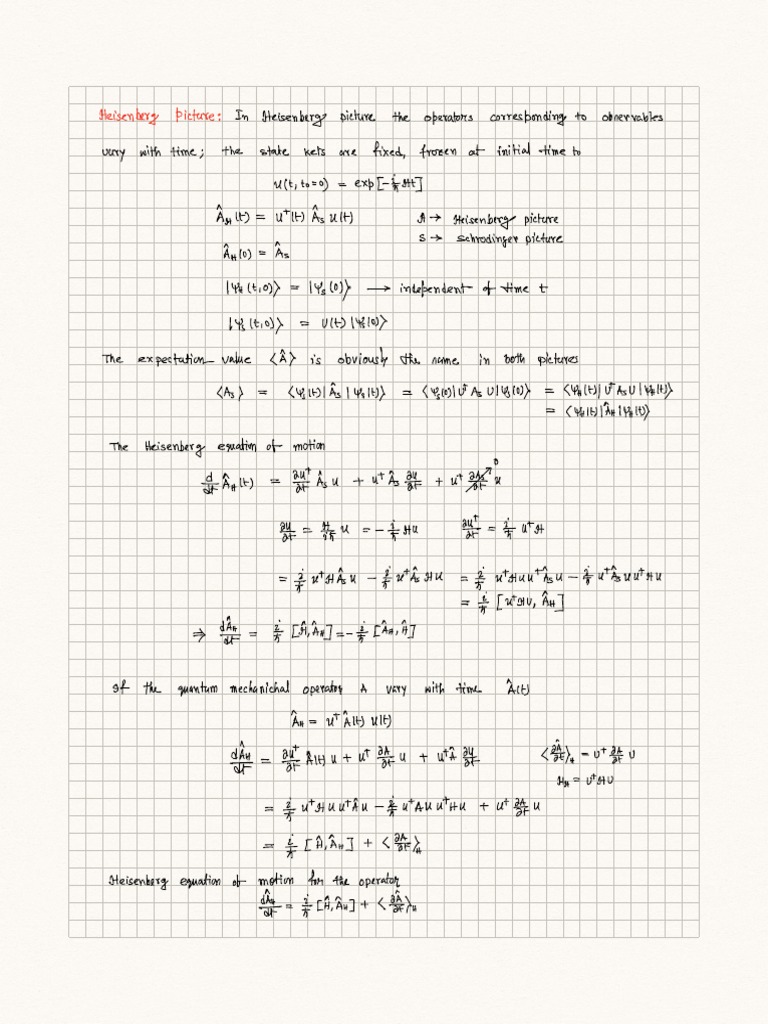 Heisenberg Picture: In Heisenberg picture the operators corresponding to observables
vary with time; the state kets are fixed, frozen at initial time t₀
U(t, t₀=0) = exp[-i/ħ Ht]
Â_H(t) = U⁺(t) Â_S U(t) H → Heisenberg picture
S → Schrodinger picture
Â_H(0) = Â_S
|Ψ_H(t,0)⟩ = |Ψ_S(0)⟩ → independent of time t
|Ψ_S(t,0)⟩ = U(t) |Ψ_S(0)⟩
The expectation value ⟨Â⟩ is obviously the same in both pictures
⟨A_S⟩ = ⟨Ψ_S(t)|Â_S|Ψ_S(t)⟩ = ⟨Ψ_S(0)|U⁺ A_S U|Ψ_S(0)⟩ = ⟨Ψ_H(t)|U⁺ A_S U|Ψ_H(t)⟩
= ⟨Ψ_H(t)|Â_H|Ψ_H(t)⟩
The Heisenberg equation of motion
d/dt Â_H(t) = ∂U⁺/∂t Â_S U + U⁺ Â_S ∂U/∂t + U⁺ ∂Â_S/∂t U 0
∂U/∂t = H/iħ U = -i/ħ HU ∂U⁺/∂t = i/ħ U⁺H
= i/ħ U⁺HÂ_S U - i/ħ U⁺Â_S HU = i/ħ U⁺HUU⁺Â_S U - i/ħ U⁺Â_S UU⁺HU
= i/ħ [U⁺HU, Â_H]
⇒ dÂ_H/dt = i/ħ [Ĥ,Â_H] = -i/ħ [Â_H,Ĥ]
If the quantum mechanichal operator A vary with time Â(t)
Â_H = U⁺Â(t) U(t)
dÂ_H/dt = ∂U⁺/∂t Â(t) U + U⁺ ∂A/∂t U + U⁺Â ∂U/∂t ⟨∂Â/∂t⟩_H = U⁺ ∂A/∂t U
H_H = U⁺HU
= i/ħ U⁺HUU⁺ÂU - i/ħ U⁺AUU⁺HU + U⁺ ∂A/∂t U
= i/ħ [Ĥ,Â_H] + ⟨∂A/∂t⟩_H
Heisenberg equation of motion for the operator
dÂ_H/dt = i/ħ [Ĥ,Â_H] + ⟨∂Â/∂t⟩_H